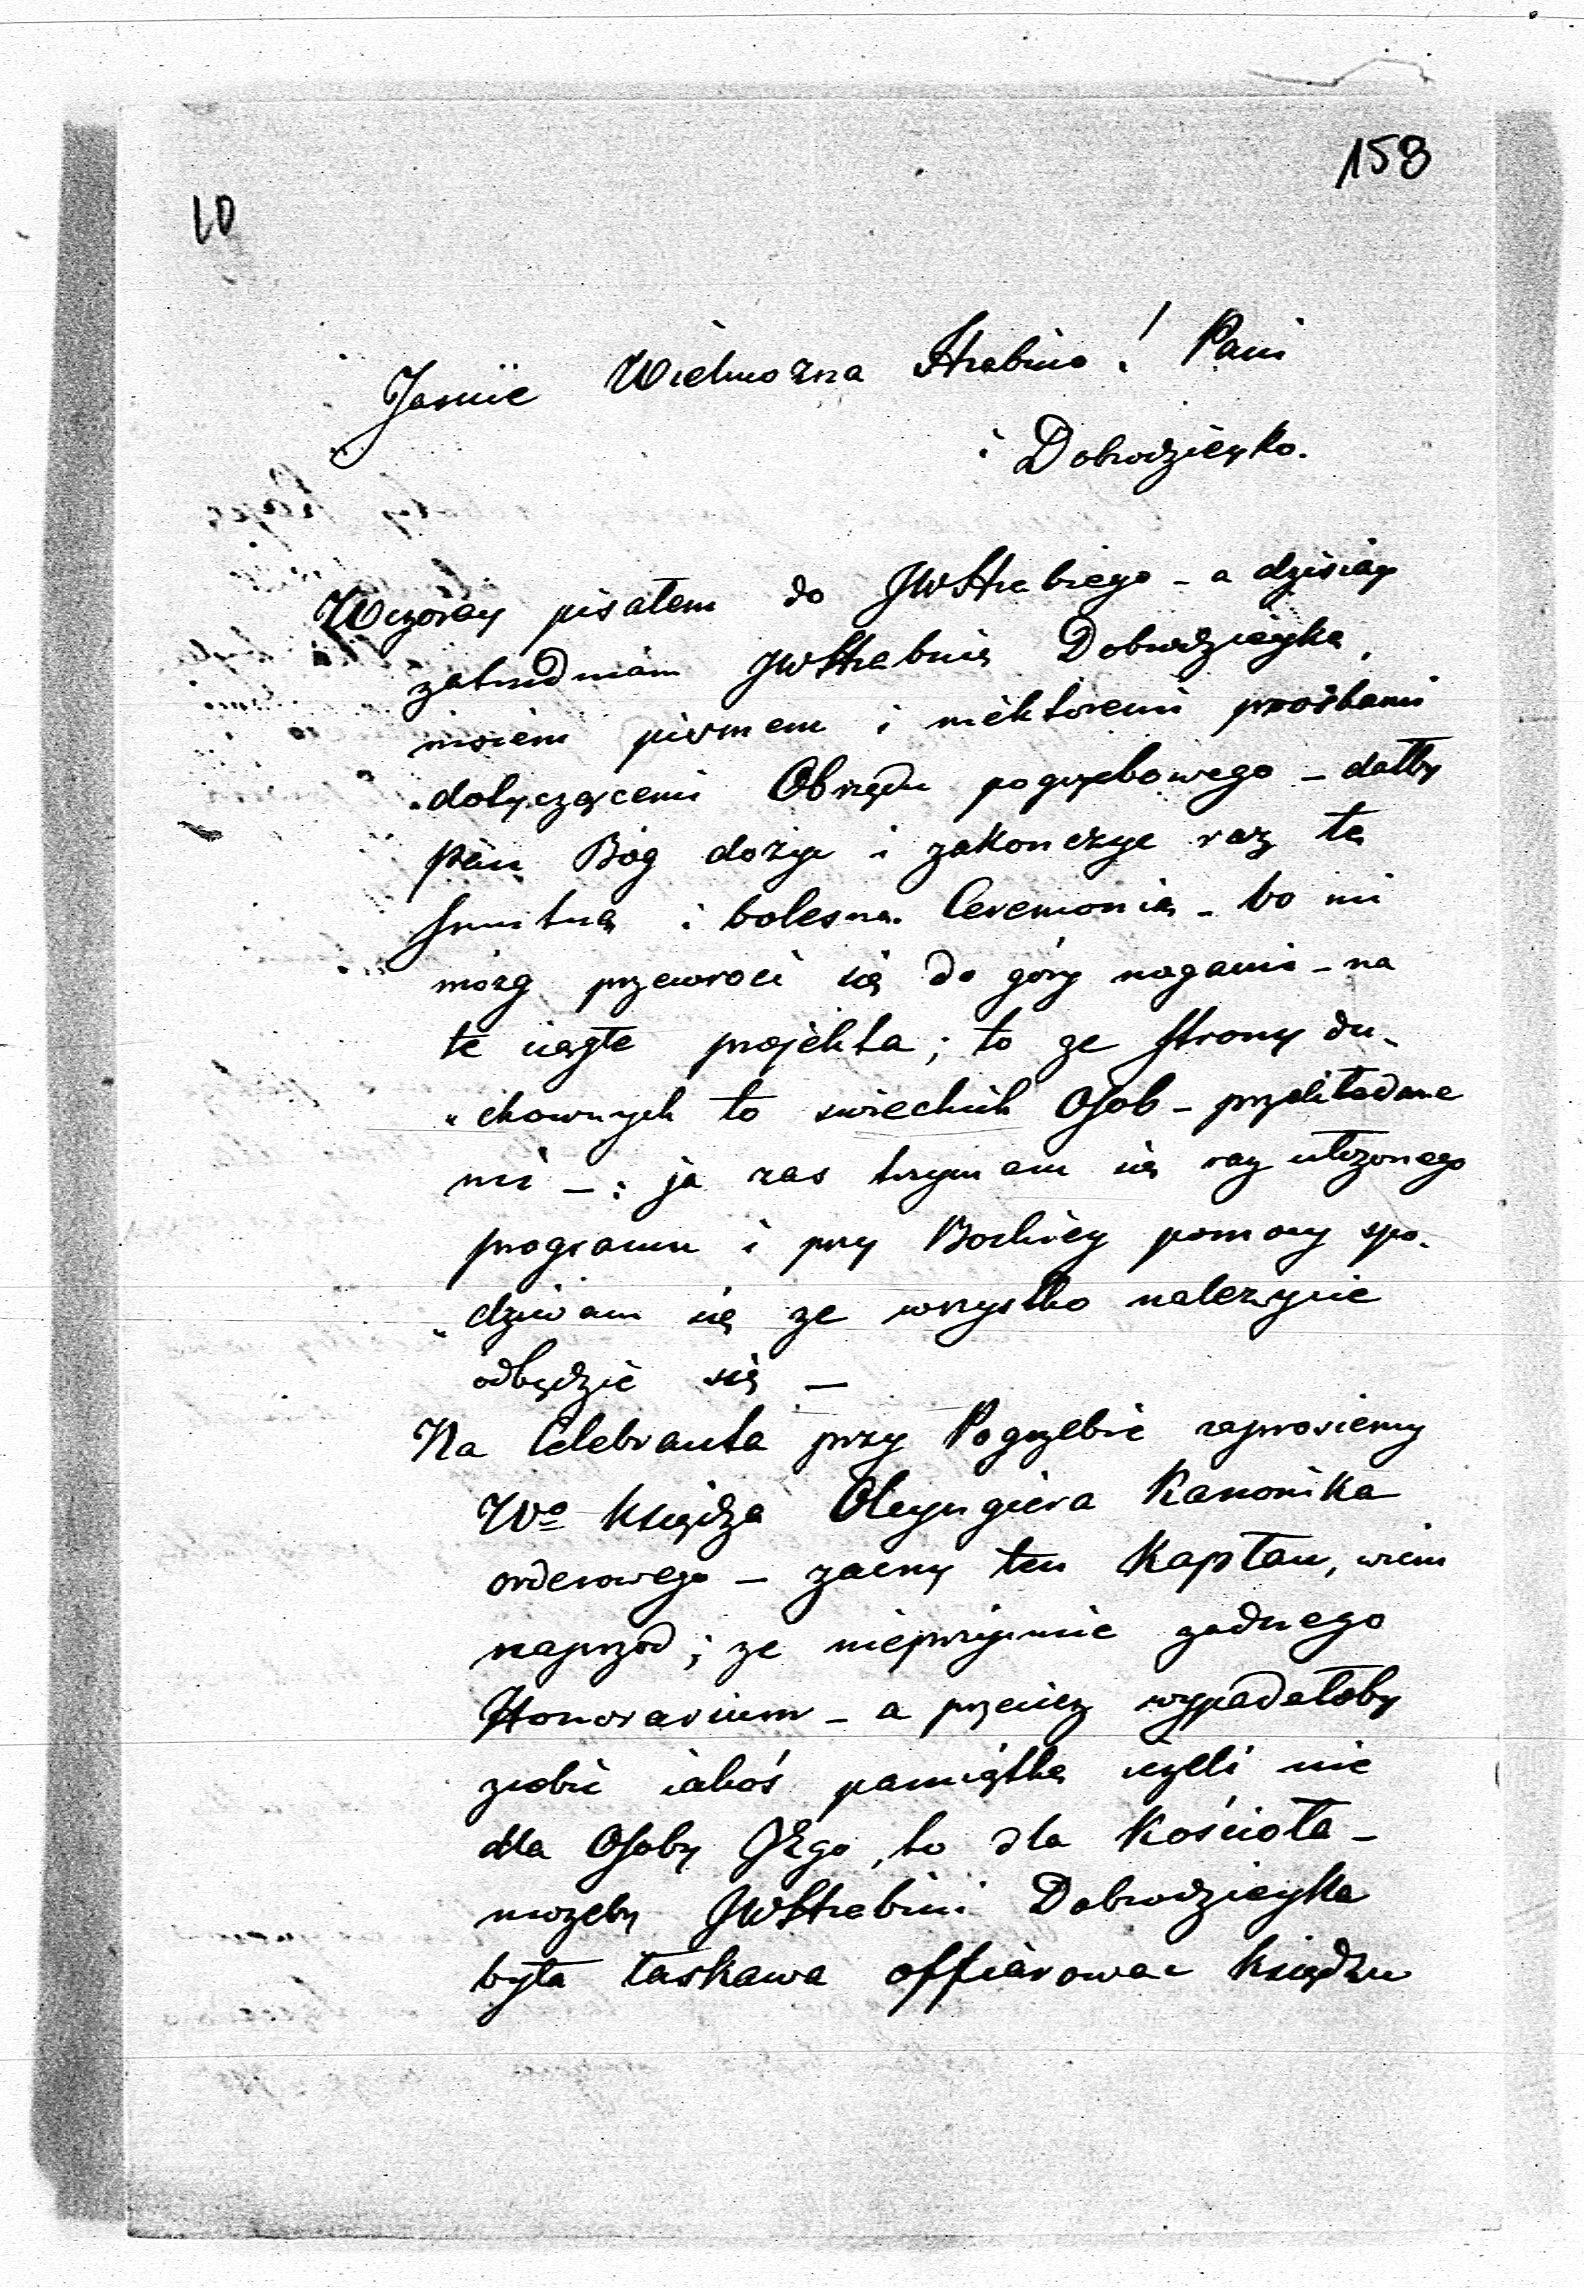 158
10
Jasnie Wielmozna Hrabino! Pani
i Dobrodzieyko.
Wczoray pisałem do JWHrabiego - a dzisiay
zatrudniam JWHrabinią Dobrodzieyką,
pismem i niektoremi prośbami
dotyczącemi Obrzędu pogrzebowego - dałby
Pan Bóg dożyć i zakonczyc raz tę
smutną i bolesną Ceremonią - bo mi
mózg przewroci się do góry nogami - na
te ciągłe projekta; to ze strony du-
„chownych to swieckich Osob - przekładane
mi - : ja zas trzymam się raz ułożonego
programu i przy Boskiey pomocy spo-
„dziwam się ze wszystko nalezycie
odbędzie się -
Na Celebranta przy Pogrzebie zaprosiemy
Wo Księdza Oleyngiera Kanonika
orderowego - zacny ten Kapłan, wiem
naprzod; ze nieprzyimie zadnego
Honorarium - a przeciez wypadałoby
zrobić iakoś pamiątkę iezeli nie
dla Osoby JEgo, to dla Kościoła -
mozeby JWHrabini Dobrodzieyka
była łaskawa offiarowac Księdzu